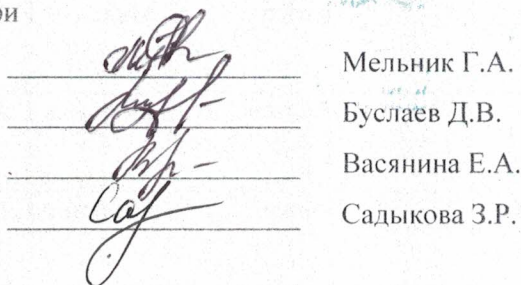 ри
Мельник Г.А.
Буслаев Д.В.
Васянина Е.А.
Садыкова З.Р.